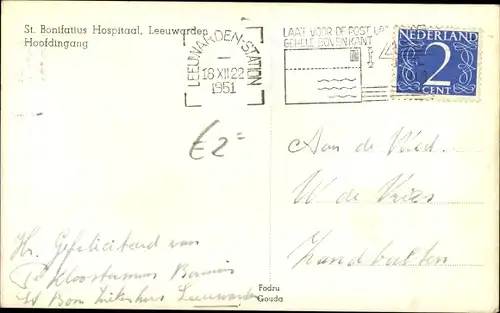 St. Bonifatius Hospitaal, Leeuwarden
Hoofdingang
LEEUWARDEN-STATION
18 XII 22
1951
LAAT VOOR DE POST
GEHELE BOVENKANT
NEDERLAND
2
CENT
€2=
Aan de Wed.
W de Vries
Zandbulten
Hr. Gefeliciteerd van
Kloosterman
St Bon Ziekenhuis Leeuwarden
Fodru
Gouda